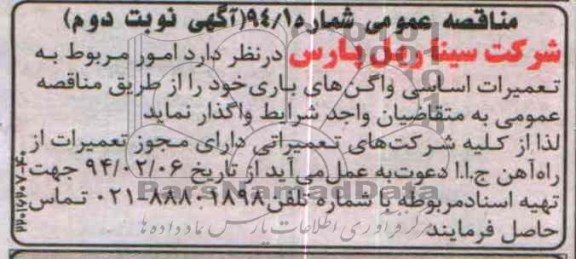 مناقصه عمومی شماره ۹۴/۱(آگهی نوبت دوم)
شرکت سینا ریل پارس درنظر دارد امور مربوط به
تعمیرات اساسی واگن‌های باری خود را از طریق مناقصه
عمومی به متقاضیان واجد شرایط واگذار نماید
لذا از کلیه شرکت‌های تعمیراتی دارای مجوز تعمیرات از
راه‌آهن ج.ا.ا دعوت به عمل می آید از تاریخ ۹۴/۰۲/۰۶ جهت
تهیه اسناد مربوطه با شماره تلفن ۸۸۸۰۹۸۹۸-۰۲۱ تماس
حاصل فرمایند
ParsNamadData
مرکز فرآوری اطلاعات پارس نماد داده ها